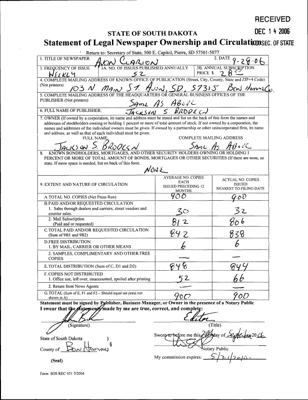 RECEIVED
DEC 14 2006
SEC. OF STATE
STATE OF SOUTH DAKOTA
Statement of Legal Newspaper Ownership and Circulation
Return to: Secretary of State, 500 E. Capitol, Pierre, SD 57501-5077
1. TITLE OF NEWSPAPER
Avon Clarion
9-28-06
3. FREQUENCY OF ISSUE
Weekly
3A. NO. OF ISSUES PUBLISHED ANNUALLY
52
3B. ANNUAL SUBSCRIPTION
PRICE $
4. COMPLETE MAILING ADDRESS OF KNOWN OFFICE OF PUBLICATION (Street, City, County, State and ZIP+4 Code)
(Not printers)
103 N Main St Avon, SD, 57315 Bon Homme Co.
5. COMPLETE MAILING ADDRESS OF THE HEADQUARTERS OR GENERAL BUSINESS OFFICES OF THE
PUBLISHER (Not printers)
Same As Above
6. FULL NAME OF PUBLISHER:
Jackson S Brodeen
7. OWNER (If owned by a corporation, its name and address must be stated and also the names and
addresses of stockholders owning or holding 1 percent or more of total amount of stock. If not owned by a corporation, the
names and addresses of the individual owners must be given. If owned by a partnership or other unincorporated firm, its name
and address, as well as that of each individual must be given.
FULL NAME
COMPLETE MAILING ADDRESS
Jackson S Brodeen
Same As Above
8. KNOWN BONDHOLDERS, MORTGAGEES, AND OTHER SECURITY HOLDERS OWNING OR HOLDING 1
PERCENT OR MORE OF TOTAL AMOUNT OF BONDS, MORTGAGES OR OTHER SECURITIES (If there are none, so
state. If more space is needed, list on back of this form.)
None
9. EXTENT AND NATURE OF CIRCULATION
AVERAGE NO. COPIES
EACH
ISSUED PRECEDING 12
MONTHS
ACTUAL NO. COPIES
ISSUED
NEAREST TO FILING DATE
A. TOTAL NO. COPIES (Net Press Run)
900
900
B. PAID AND/OR REQUESTED CIRCULATION
1. Sales through dealers and carriers, street vendors and
counter sales.
30
32
2. Mail Subscription
(Paid and or requested)
812
806
C. TOTAL PAID AND/OR REQUESTED CIRCULATION
(Sum of 9B1 and 9B2)
842
838
D. FREE DISTRIBUTION
1. BY MAIL, CARRIER OR OTHER MEANS
6
6
2. SAMPLES, COMPLIMENTARY AND OTHER FREE
COPIES
E. TOTAL DISTRIBUTION (Sum of C, D1 and D2)
848
844
F. COPIES NOT DISTRIBUTED
1. Office use, left over, unaccounted, spoiled after printing
52
66
2. Return from News Agents
G. TOTAL (Sum of E, F1 and F2 - Should equal net press run
shown in A)
900
900
Statement must be signed by Publisher, Business Manager, or Owner in the presence of a Notary Public
I swear that the statements made by me are true, correct, and complete:
(Signature)
Editor
(Title)
State of South Dakota )
County of Bon Homme
(Seal)
Sworn to before me this day of September 2006
Notary Public
My commission expires:
Form: SOS REC 051 7/2004